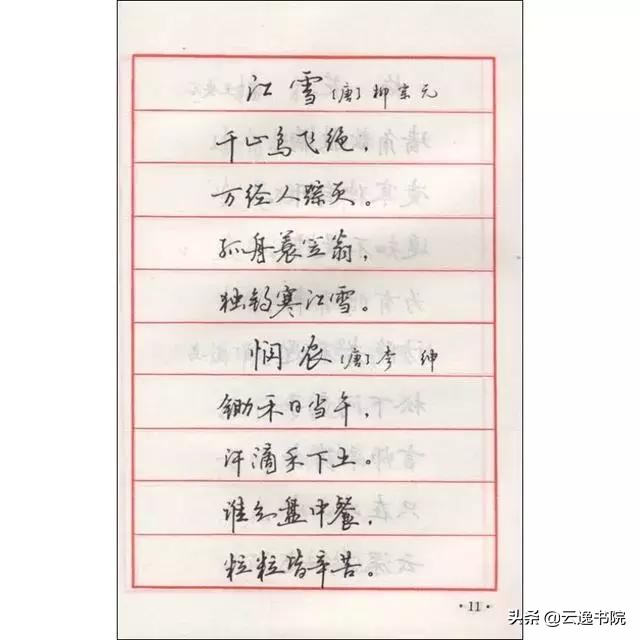 江雪 (唐) 柳宗元
千山鸟飞绝，
万径人踪灭。
孤舟蓑笠翁，
独钓寒江雪。
悯农 (唐) 李绅
锄禾日当午，
汗滴禾下土。
谁知盘中餐，
粒粒皆辛苦。
·11·
头条 @云逸书院